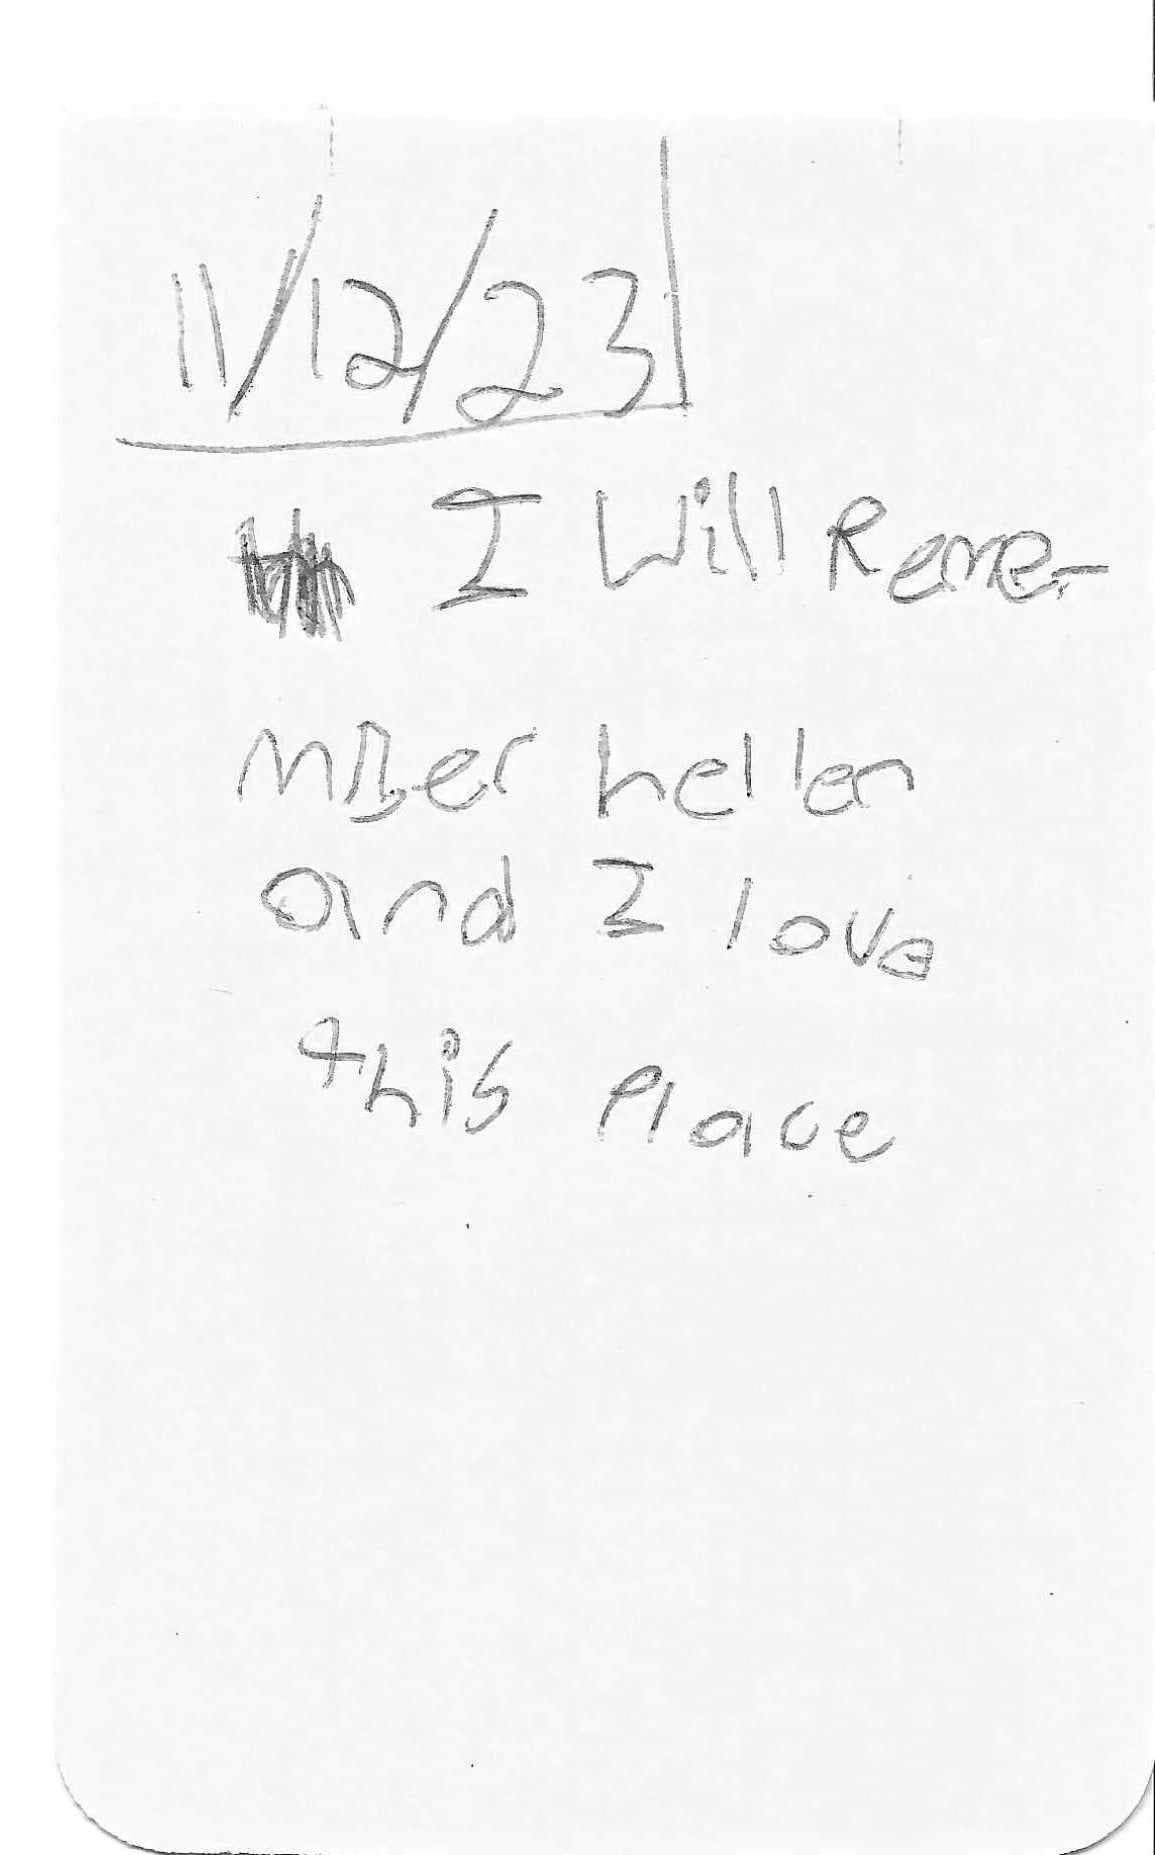 11/12/23
I Will Reme-
mBer hellen
and I love
this Place